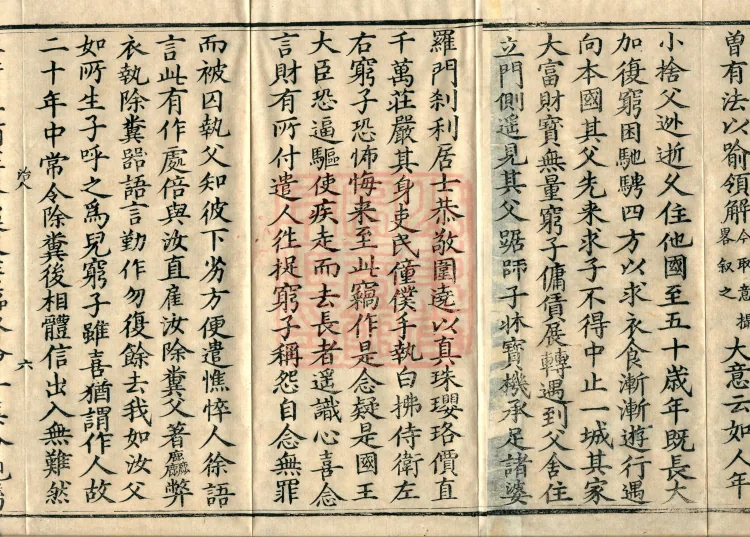 曾有法以喻領解今取意提畧叙之大意云如人年
小捨父逃逝久住他國至五十歲年既長大
加復窮困馳騁四方以求衣食漸漸遊行遇
向本國其父先来求子不得中止一城其家
大富財寶無量窮子傭賃展轉遇到父舍住
立門側遥見其父踞師子牀寶機承足諸婆
羅門刹利居士恭敬圍遶以真珠瓔珞價直
千萬莊嚴其身吏民僮僕手執白拂侍衛左
右窮子恐怖悔来至此竊作是念疑是國王
大臣恐逼驅使疾走而去長者遥識心喜念
言財有所付遣人徃捉窮子稱怨自念無罪
而被囚執父知彼下劣方便遣憔悴人徐語
言此有作處倍與汝直雇汝除糞父著麤弊
衣執除糞器語言勤作勿復餘去我如汝父
如所生子呼之爲兒窮子雖喜猶謂作人故
二十年中常令除糞後相體信出入無難然
六